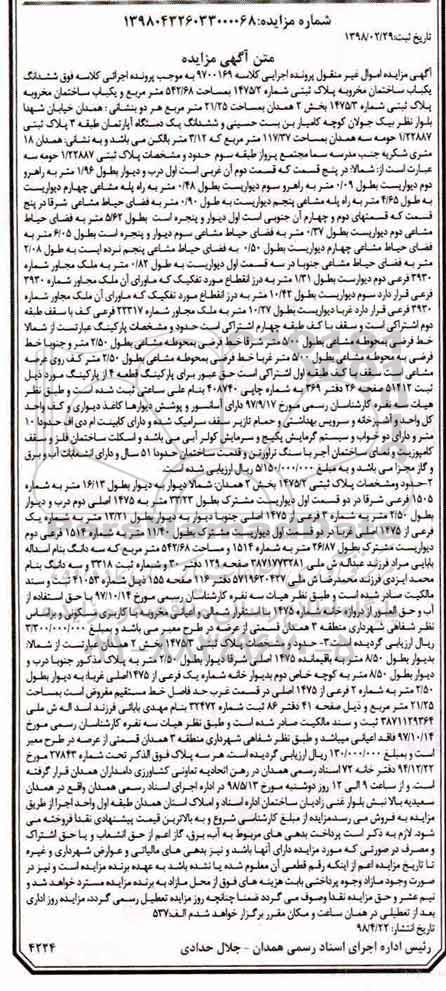 شماره مزایده: ۱۳۹۸۰۴۳۲۶۰۳۳۰۰۰۰۶۸
تاریخ ثبت: ۱۳۹۸/۰۲/۲۹
متن آگهی مزایده
آگهی مزایده اموال غیر منقول پرونده اجرایی کلاسه ۹۷۰۰۱۶۹ به موجب پرونده اجرائی کلاسه فوق ششدانگ
یکباب ساختمان مخروبه پلاک ثبتی شماره ۱۴۷۵/۲ بمساحت ۵۴۲/۶۸ متر مربع و یکباب ساختمان مخروبه
پلاک ثبتی شماره ۱۴۷۵/۳ بخش ۲ همدان بمساحت ۲۱/۲۵ متر مربع هر دو بنشانی: همدان خیابان شهدا
بلوار نظر بیک جولان کوچه کامیار بن بست حسینی و ششدانگ یک دستگاه آپارتمان طبقه ۳ پلاک ثبتی
۱/۲۲۸۸۷ حومه سه همدان بمساحت ۱۱۷/۳۷ متر که ۳/۱۲ متر بالکن می باشد و به نشانی: همدان ۱۸
متری شکریه جنب مدرسه سما مجتمع پرواز طبقه سوم حدود و مشخصات پلاک ثبتی ۱/۲۲۸۸۷ حومه سه
عبارت است از: شمالا: در پنج قسمت که قسمت دوم آن غربی است اول درب و دیوار بطول ۱/۹۶ متر به راهرو
دوم دیواریست بطول ۰/۰۹ متر به راهرو سوم دیواریست بطول ۰/۴۸ متر به راه پله مشاعی چهارم دیواریست
به طول ۴/۶۵ متر به راه پله مشاعی پنجم دیواریست به طول ۰/۹۰ متر به فضای حیاط مشاعی شرقا در پنج
قسمت که قسمتهای دوم و چهارم آن جنوبی است اول دیوار و پنجره است بطول ۵/۶۲ متر به فضای حیاط
مشاعی دوم دیواریست بطول ۰/۳۷ متر به فضای حیاط مشاعی سوم دیوار و پنجره است بطول ۶/۰۵ متر به
فضای حیاط مشاعی چهارم دیواریست بطول ۰/۵۰ به فضای حیاط مشاعی پنجم نرده ایست به طول ۲/۰۸
متر به فضای حیاط مشاعی جنوبا در سه قسمت اول دیواریست به طول ۰/۸۲ متر به ملک مجاور شماره
۳۹۳۰ فرعی دوم دیواریست بطول ۱/۳۱ متر به درز انقطاع مورد تفکیک که ماورای آن ملک مجاور شماره ۳۹۳۰
فرعی قرار دارد سوم دیواریست بطول ۱۰/۴۲ متر به درز انقطاع مورد تفکیک که ماورای آن ملک مجاور شماره
۳۹۳۰ فرعی قرار دارد غربا دیواریست بطول ۱۰/۲۷ متر به ملک مجاور شماره ۲۲۳۱۷ فرعی کف با سقف طبقه
دوم اشتراکی است و سقف با کف طبقه چهارم اشتراکی است حدود و مشخصات پارکینگ عبارتست از شمالا
خط فرضی بمحوطه مشاعی بطول ۵/۰۰ متر شرقا خط فرضی بمحوطه مشاعی بطول ۲/۵۰ متر و جنوبا خط
فرضی به محوطه مشاعی بطول ۵/۰۰ متر غربا خط فرضی بمحوطه مشاعی بطول ۲/۵۰ متر کف روی عرصه
مشاعی است سقف با کف طبقه اول اشتراکی است حق عبور برای پارکینگ قطعه ۴ از پارکینگ مورد ذیل
ثبت ۵۱۴۱۲ صفحه ۲۶ دفتر ۳۶۹ به شماره چاپی ۴۰۸۷۴۰ بنام علی ساعتی ثبت شده است و طبق نظر
هیات سه نفره کارشناسان رسمی مورخ ۹۷/۹/۱۷ دارای آسانسور و پوشش دیوارها کاغذ دیواری و کف واحد
کل واحد و آشپزخانه و سرویس بهداشتی و حمام تا زیر سقف سرامیک شده و دارای کابینت ام دی اف حدودا ۱۰
متر و دارای دو خواب و سیستم گرمایش پکیج و سرمایش کولر آبی می باشد و اسکلت ساختمان فلز و سقف
کامپوزیت و نمای ساختمان آجر با سنگ تراورتن و قدمت ساختمان حدودا ۵۱ سال و دارای انشعابات آب و برق
و گاز مجزا می باشد و به مبلغ ۵/۱۵۰/۰۰۰/۰۰۰ ریال ارزیابی شده است.
۲-حدود و مشخصات پلاک ثبتی ۱۴۷۵/۲ بخش ۲ همدان: شمالا دیوار به دیوار بطول ۱۶/۱۳ متر به شماره
۱۵۰۵ فرعی شرقا در دو قسمت اول دیواریست مشترک بطول ۳۳/۲۳ متر به ۱۴۷۵ اصلی دوم درب و دیوار
بطول ۲/۵۰ متر به شماره ۳ فرعی از ۱۴۷۵ اصلی جنوبا دیوار به دیوار بطول ۱۳/۲۱ متر به شماره یک
فرعی از ۱۴۷۵ اصلی غربا در دو قسمت اول دیواریست مشترک بطول ۱۱/۴۰ متر به شماره ۱۵۱۴ فرعی دوم
دیواریست مشترک بطول ۲۶/۸۷ متر به شماره ۱۵۱۴ و مساحت ۵۴۲/۶۸ متر مربع که سه دانگ بنام اسداله
بابایی مراد فرزند عبداله ش ملی ۳۸۷۱۷۷۳۲۸۱ صفحه ۱۲۹ دفتر ۳۰ و شماره ثبت ۳۳۱۸ و سه دانگ بنام
محمد ایزدی فرزند محمدرضا ش ملی ۵۷۱۹۶۲۰۴۲۷ دفتر ۱۱۶ صفحه ۱۵۵ ذیل شماره ۴۱۰۵۳ ثبت و سند
مالکیت صادر شده است و طبق نظر هیات سه نفره کارشناسان رسمی مورخ ۹۷/۱۰/۱۴ با حق استفاده از
آب و حق العبور از دروازه خانه شماره ۱۴۷۵ با استقرار شمالی و اعیانی مخروبه با کاربری مسکونی و براساس
نظر شفاهی شهرداری منطقه ۳ همدان قسمتی از عرصه در طرح معبر می باشد و بمبلغ ۳/۳۰۰/۰۰۰/۰۰۰
ریال ارزیابی گردیده است. ۳-حدود و مشخصات پلاک ثبتی ۱۴۷۵/۳ بخش ۲ همدان عبارتست از شمالا:
بدیوار بطول ۸/۵۰ متر به باقیمانده ۱۴۷۵ اصلی شرقا دیوار بطول ۲/۵۰ متر به پلاک مذکور جنوبا درب و
دیوار بطول ۸/۵۰ متر به کوچه خاص دوم بدیوار خانه شماره یک فرعی از ۱۴۷۵ اصلی غربا: به دیوار بطول
۲/۵۰ متر به شماره ۲ فرعی از ۱۴۷۵ اصلی در قسمت غرب حد فاصل خط مستقیم مفروض است بمساحت
۲۱/۲۵ متر مربع و ذیل صفحه ۴۱ دفتر ۸۶ ثبت شماره ۳۲۴۷۲ بنام مهدی بابائی فرزند اسد اله ش ملی
۳۸۷۱۱۲۹۳۶۴ ثبت و سند مالکیت صادر شده است و طبق نظر هیات سه نفره کارشناسان رسمی مورخ
۹۷/۱۰/۱۴ فاقد اعیانی میباشد و طبق نظر شفاهی شهرداری منطقه ۳ همدان قسمتی از عرصه در طرح معبر
است و بمبلغ ۱۳۰/۰۰۰/۰۰۰ ریال ارزیابی گردیده است. هر سه پلاک فوق الذکر تحت شماره ۲۷۸۴۳ مورخ
۹۴/۱۲/۲۲ دفتر خانه ۷۲ اسناد رسمی همدان در رهن اتحادیه تعاونی کشاورزی دامداران همدان قرار گرفته
است. و از ساعت ۹ الی ۱۲ روز دوشنبه مورخ ۹۸/۵/۱۳ در اداره اجرای اسناد رسمی همدان واقع در همدان
سعیدیه بالا نبش بلوار غنی زادیان ساختمان اداره اسناد و املاک استان همدان طبقه اول واحد اجرا از طریق
مزایده به فروش می رسد مزایده از مبلغ کارشناسی شروع و به بالاترین قیمت پیشنهادی نقدا فروخته می
شود. لازم به ذکر است پرداخت بدهی های مربوط به آب، برق، گاز اعم از حق انشعاب و یا حق اشتراک
و مصرف در صورتی که مورد مزایده دارای آنها باشد و نیز بدهی های مالیاتی و عوارض شهرداری و غیره
تا تاریخ مزایده اعم از اینکه رقم قطعی آن معلوم شده یا نشده باشد به عهده برنده مزایده است و نیز در
صورت وجود مازاد وجوه پرداختی بابت هزینه های فوق از محل مازاد به برنده مزایده مسترد خواهد شد و
نیم عشر و حق مزایده نقدا وصول می گردد ضمنا چنانچه روز مزایده تعطیل رسمی گردد، مزایده روز اداری
بعد از تعطیلی در همان ساعت و مکان مقرر برگزار خواهد شد. م الف: ۵۳۷
تاریخ انتشار: ۹۸/۴/۲۲
رئیس اداره اجرای اسناد رسمی همدان - جلال حدادی
۴۲۲۴